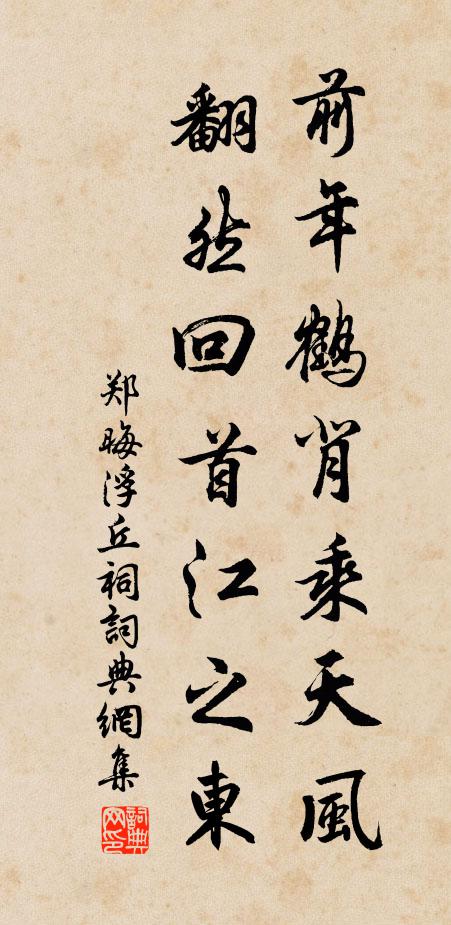 前年鶴背乘天風
翻然回首江之東
郑晦浮丘祠詞典網集
詞典网印